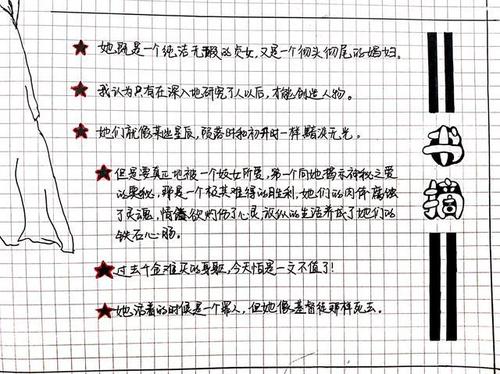 她既是一个纯洁无瑕的贞女，又是一个彻头彻尾的娼妇。
我认为只有在深入地研究了人以后，才能创造人物。
她们就像某些星辰，陨落时和初升时一样黯淡无光。
但是要真正地被一个妓女所爱，第一个向她揭示神秘之爱
的奥秘，那是一个极其难得的胜利，她们的肉体腐蚀
了灵魂，情欲灼伤了心灵，放纵的生活养成了她们的
铁石心肠。
过去千金难买的身躯，今天怕是一文不值了！
她活着的时候是一个罪人，但她像基督徒那样死去。
书摘